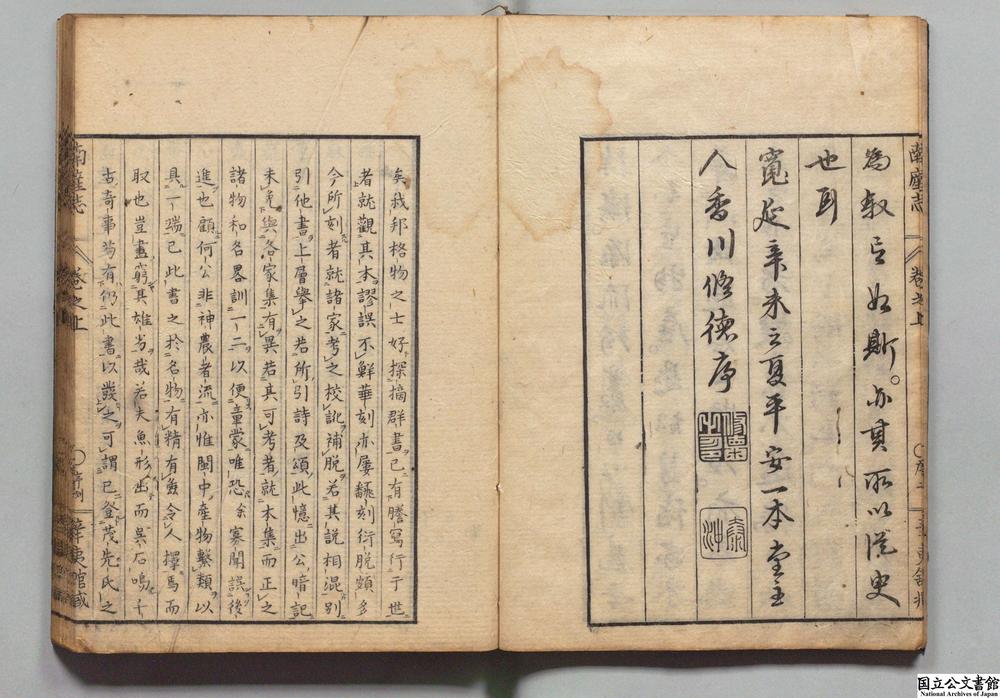 為叙言如斯。亦其所以從史
也耳
寛延辛未之夏平安一本堂主
人香川脩德序
矣我邦格物之士好探摘群書已有謄寫行于世
者就觀其本謬誤不鮮華刻亦屢飜刻衍脫頗多
今所刻者就諸家考之校訛補脫若其說相混別
引他書上層舉之若所引詩及頌此憶出公暗記
未免與各家集有異若其可考者就本集而正之
諸物和名畧訓一二以便童蒙唯恐余寡聞誤後
進也顧何公非神農者流亦惟閩中產物繫類以
具一端已此書之於名物有精有麁令人擇焉而
取也豈盡窮其雄劣哉若夫魚形出而異石鳴
古奇事為有仍此書以發之可謂已登茂先氏之
南產志
卷之上
序二
南產志
卷之上
序例
辛夷館藏
国立公文書館
National Archives of Japan